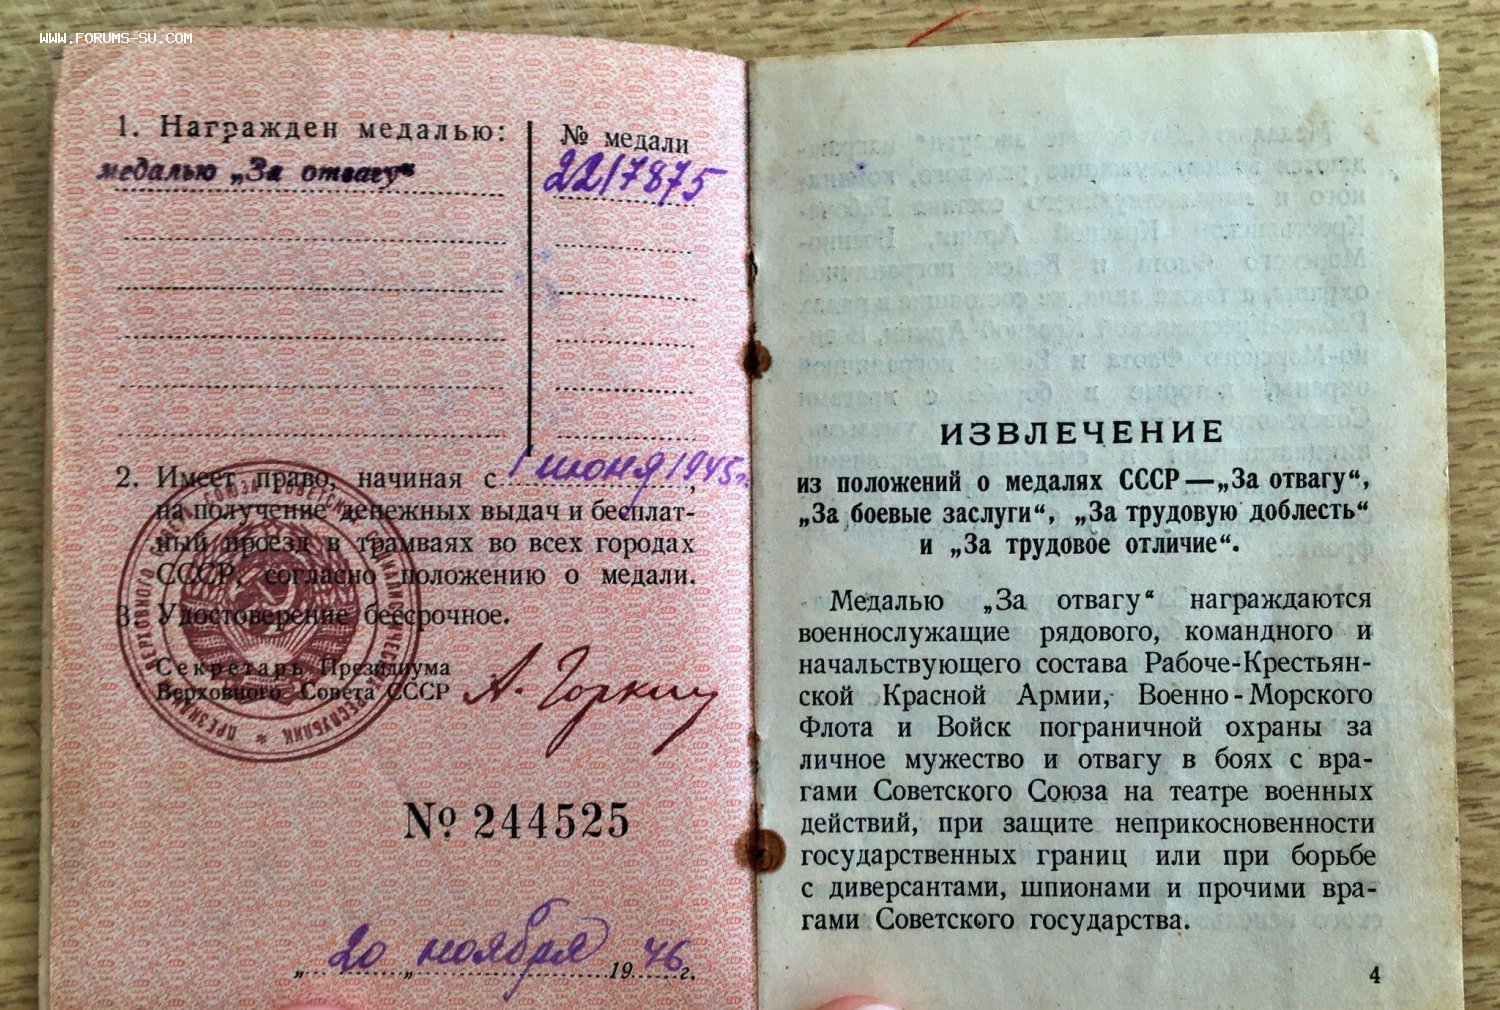 WWW.FORUMS-SU.COM
1. Награжден медалью:
№ медали
медалью „За отвагу“
2217875
2. Имеет право, начиная с 1 июня 1945г.,
на получение денежных выдач и бесплат-
ный проезд в трамваях во всех городах
СССР, согласно положению о медали.
3. Удостоверение бессрочное.
Секретарь Президиума
Верховного Совета СССР
А. Горкин
№ 244525
„20„ ноября 1946г.
ИЗВЛЕЧЕНИЕ
из положений о медалях СССР—„За отвагу“,
„За боевые заслуги“, „За трудовую доблесть“
и „За трудовое отличие“.
Медалью „За отвагу“ награждаются
военнослужащие рядового, командного и
начальствующего состава Рабоче-Крестьян-
ской Красной Армии, Военно-Морского
Флота и Войск пограничной охраны за
личное мужество и отвагу в боях с вра-
гами Советского Союза на театре военных
действий, при защите неприкосновенности
государственных границ или при борьбе
с диверсантами, шпионами и прочими вра-
гами Советского государства.
4